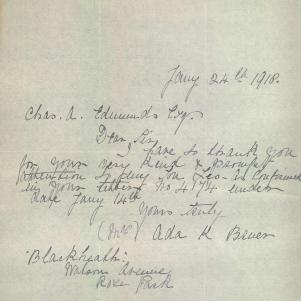 Jany 24th 1918.
Chas. A. Edmunds Esq.
Dear Sir,
I have to thank you
for your very kind & prompt
attention to my son Leo as contained
in your letter No 4174 under
date Jany 14th
Yours truly
(Mrs) Ada K
"Blackheath".
Watson Avenue
Rose Park